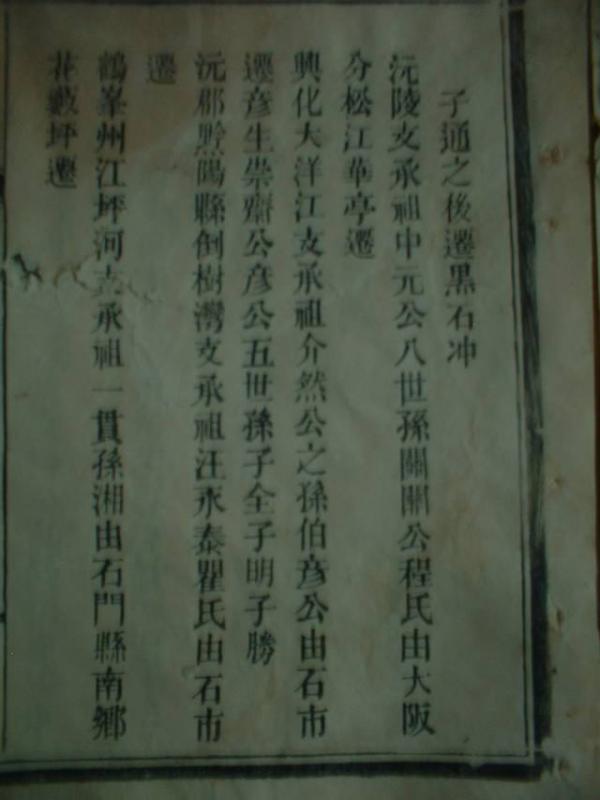 子通之後遷黑石冲
沅陵支承祖中元公八世孫關關公程氏由大阪
分松江華亭遷
興化大洋江支承祖介然公之孫伯彦公由石市
遷彦生崇齋公彦公五世孫子全子明子勝
沅郡黔陽縣倒樹灣支承祖汪永泰瞿氏由石市
遷
鶴峯州江坪河支承祖一貫孫湘由石門縣南鄉
花藪坪遷